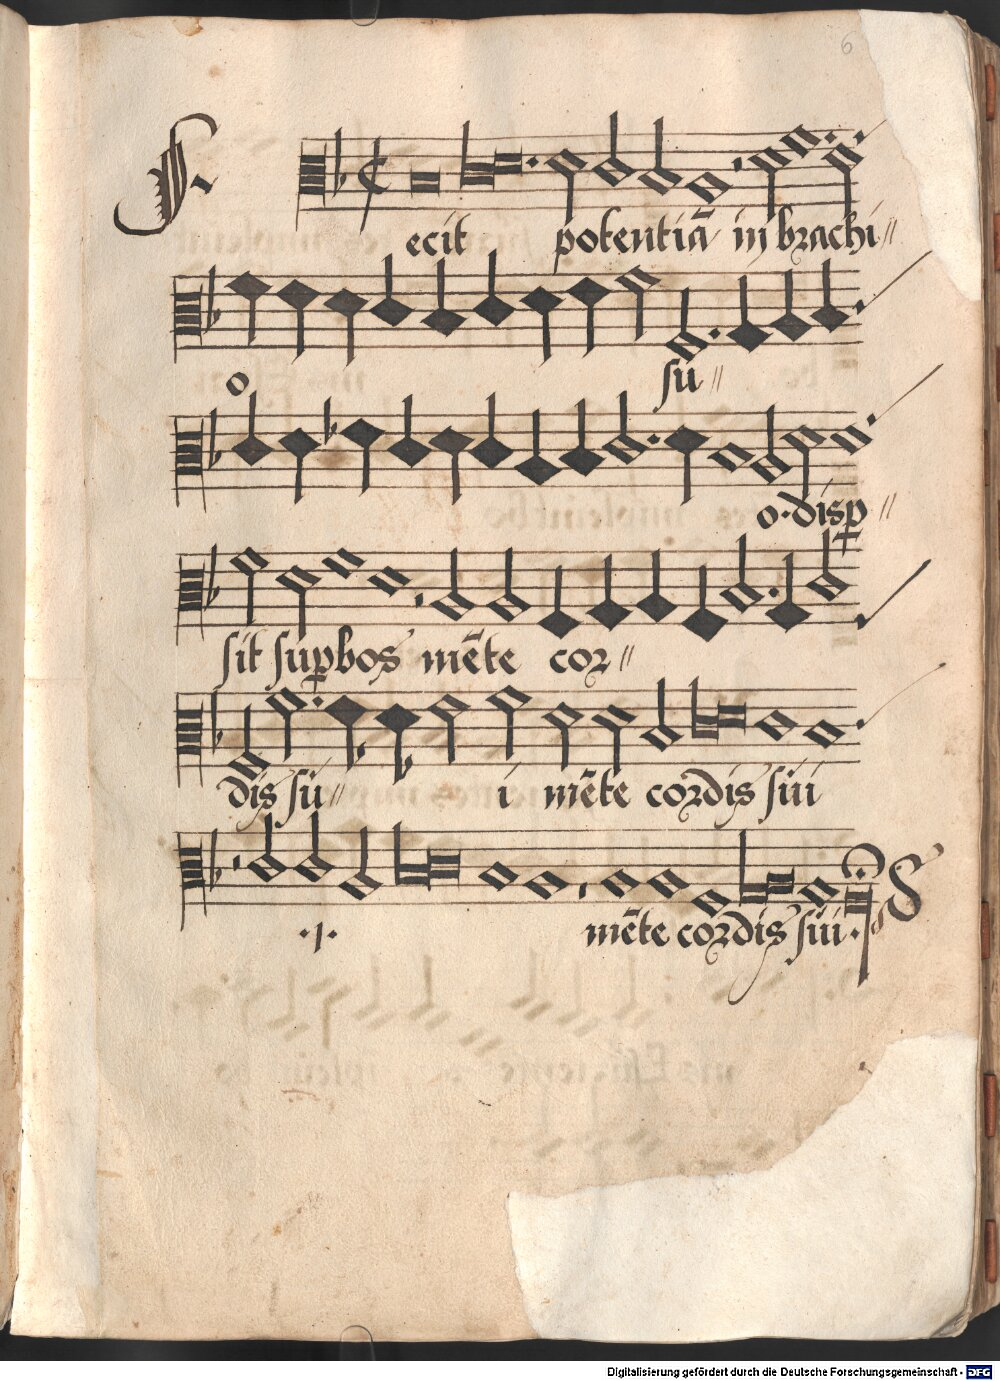 6
F.
ecit potentiā in brachi //
o su //
o. disp //
sit sup̱bos mēte cor //
dis su // i mēte cordis sui
.j. mēte cordis sui.
Digitalisierung gefördert durch die Deutsche Forschungsgemeinschaft - DFG